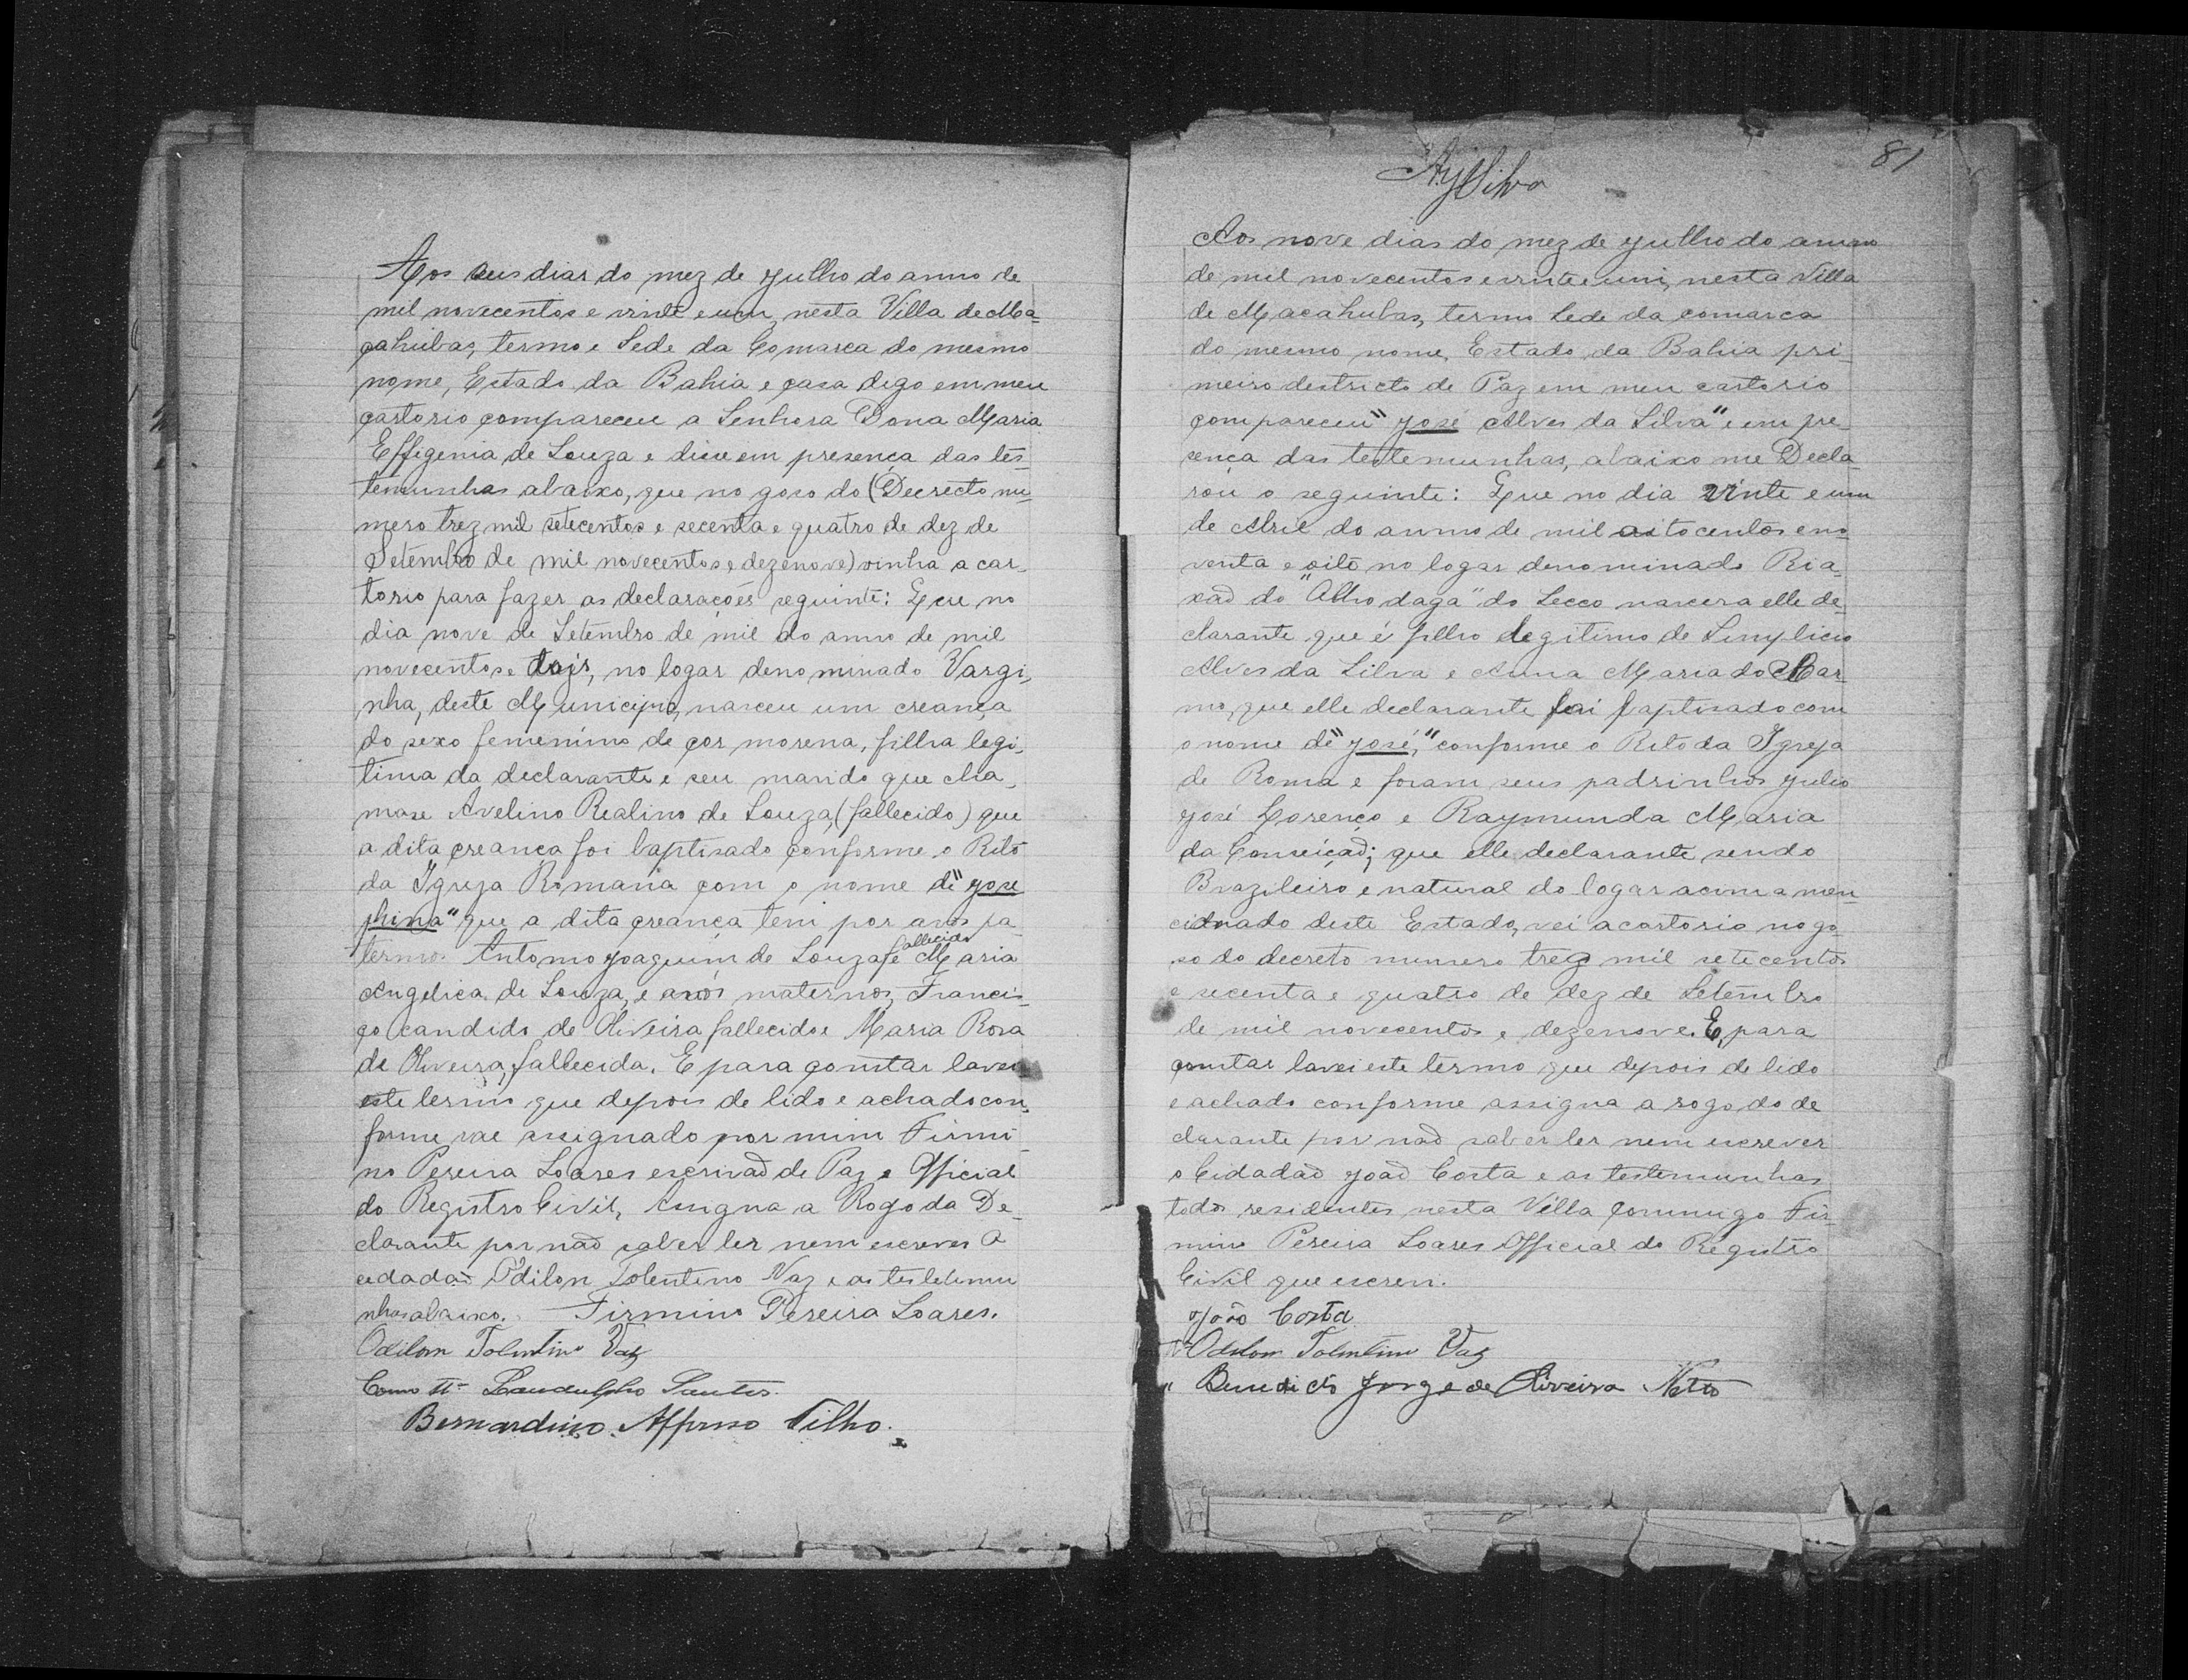 Aos seis dias do mez de Julho do anno de
mil novecentos e vinte e um, nesta Villa de Ma-
cahubas, termo e Sede da Comarca do mesmo
nome, Estado da Bahia e casa digo em meu
cartorio compareceu a Senhora Dona Maria
Effigenia de Souza e disse em presença das tes-
temunhas abaixo, que no goso do (Decrecto nu-
mero trez mil setecentos e secenta e quatro de dez de
Setembro de mil novecentos e dezenove) vinha a car-
torio para fazer as declarações seguinte: Que no
dia nove de Setembro de mil do anno de mil
novecentos e dois, no logar denominado Vargi-
nha, deste Municipio, nasceu um creança
do sexo femenino de cor morena, filha legi-
tima da declarante e seu marido que cha-
mase Avelino Realino de Souza, (fallecido) que
a dita creança foi baptisado conforme o Rito
da Igreja Romana com o nome de "Jose
phina" que a dita creança tem por avós pa-
ternos Antonio Joaquim de Souza fallecido e Maria
Angelica de Souza, e avós maternos, Francis-
co candido de Oliveira fallecido e Maria Rosa
de Oliveira, fallecida. E para constar lavrei
este termo que depois de lido e achado con-
forme vae assignado por mim Firmi-
no Pereira Soares escrivaõ de Paz e Official
do Registro Civil, Assigna a Rogo da De-
clarante por naõ saber ler nem escrever o
cidadaõ Odilon Tolentino Vaz e as testetemu
nhas abaixo. Firmino Pereira Soares.
Odilon Tolentino Vaz
Como tª Landulpho Santos.
Bernardino Affonso Filho.
81
AySilva
Aos nove dias do mez de Julho do anno
de mil novecentos e vinte e um, nesta Villa
de Macahubas, termo Sede da comarca
do mesmo nome, Estado da Bahia pri-
meiro destricto de Paz em meu cartorio
compareceu "José Alves da Silva" e em pre-
sença das testemunhas, abaixo me Decla-
rou o seguinte: Que no dia vinte e um
de Abril do anno de mil oitocentos e no-
venta e oito no logar denominado Ria-
xaõ do do Secco nascera elle de-
clarante que é filho legitimo de Simplicio
Alves da Silva e Anna Maria do Car-
mo, que elle declarante foi baptisado com
o nome de "José," conforme o Rito da Igreja
de Roma e foram seus padrinhos Julio
José Lorenço e Raymunda Maria
da Conceiçaõ; que elle declarante sendo
Brazileiro e natural do logar acima men
cionado deste Estado, vei a cartorio no go
so do decreto numero trez mil setecentos
e secenta e quatro de dez de Setembro
de mil novecentos e dezenove. E, para
constar lavrei este termo que depois de lido
e achado conforme assigna a rogo do de
clarante por naõ saber ler nem escrever
o Cidadaõ Joaõ Costa e as testemunhas
todos residentes nesta Villa commigo Fir-
mino Pereira Soares Official do Registro
Civil que escrevi.
João Costa
Tª Odilon Tolentino Vaz
" Benedicto Jorge de Oliveira Netto